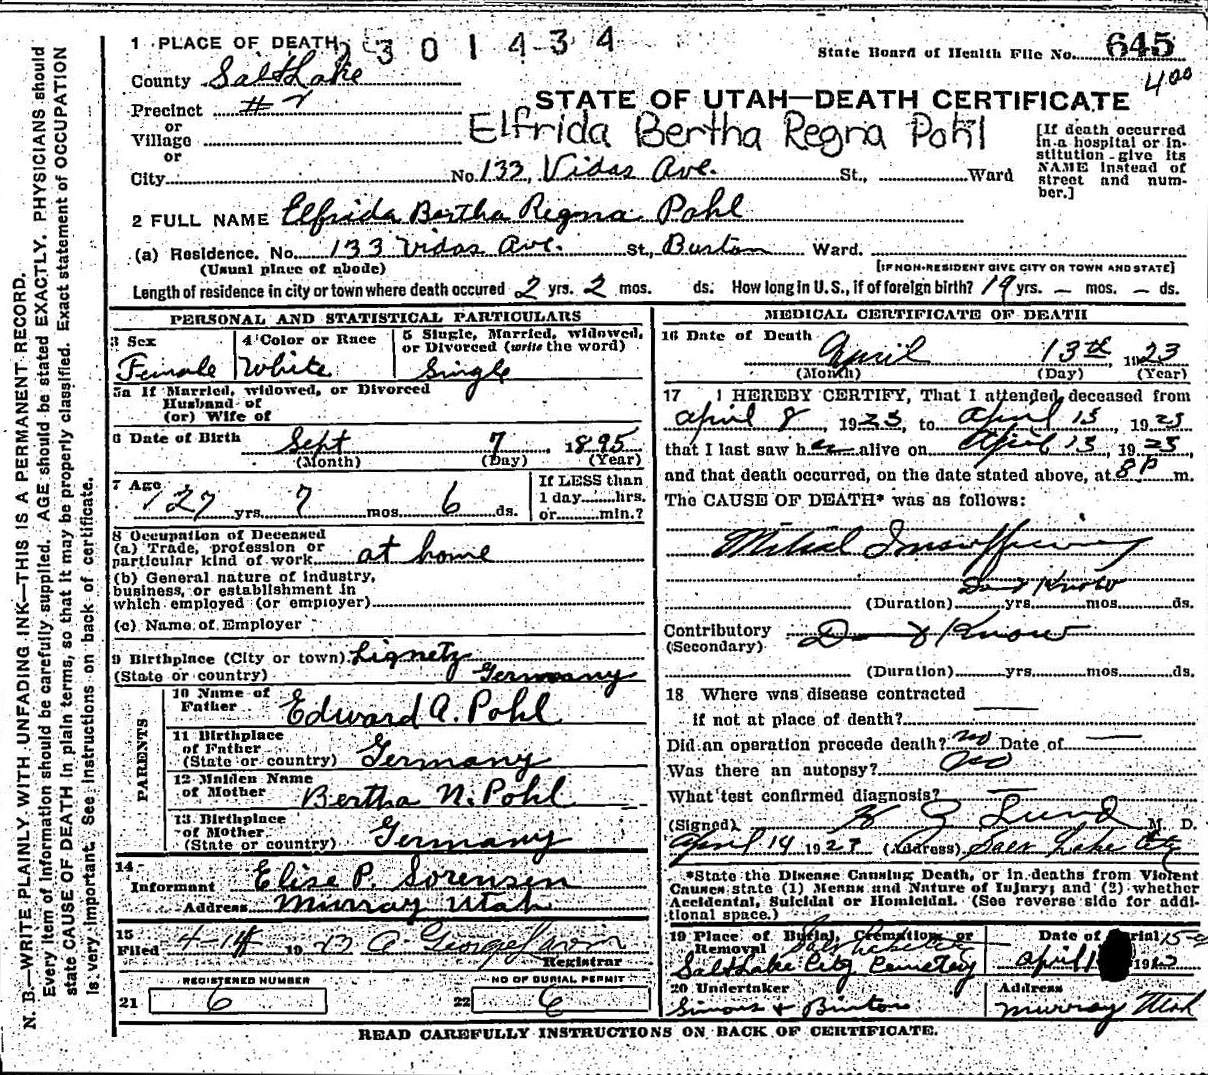 1 PLACE OF DEATH
2301434
State Board of Health File No. 645
County Salt Lake
4.00
Precinct #2
STATE OF UTAH—DEATH CERTIFICATE
or
Village
Elfrida Bertha Regna Pohl
or
City No. 133, Vidas Ave. St., Ward
[If death occurred in a hospital or institution give its NAME instead of street and number.]
2 FULL NAME Elfrida Bertha Regna Pohl
(a) Residence. No. 133 Vidas Ave. St., Burton Ward.
(Usual place of abode)
[IF NON-RESIDENT GIVE CITY OR TOWN AND STATE]
Length of residence in city or town where death occured 2 yrs. 2 mos. ds. How long in U.S., if of foreign birth? 19 yrs. – mos. – ds.
PERSONAL AND STATISTICAL PARTICULARS
3 Sex
Female
4 Color or Race
White
5 Single, Married, widowed,
or Divorced (write the word)
Single
5a If Married, widowed, or Divorced
Husband of
(or) Wife of
6 Date of Birth Sept 7, 1895
(Month) (Day) (Year)
7 Age
27 yrs. 7 mos. 6 ds.
If LESS than
1 day hrs.
or min.?
8 Occupation of Deceased
(a) Trade, profession or
particular kind of work at home
(b) General nature of industry,
business, or establishment in
which employed (or employer)
(c) Name of Employer
9 Birthplace (City or town) Lignetz
(State or country) Germany
PARENTS
10 Name of
Father Edward A. Pohl
11 Birthplace
of Father
(State or country) Germany
12 Maiden Name
of Mother Bertha N. Pohl
13 Birthplace
of Mother
(State or country) Germany
14
Informant Elise P. Sorensen
Address Murray Utah
15
Filed 4-14 1923
Registrar
REGISTERED NUMBER
21 6
NO OF BURIAL PERMIT
22 6
MEDICAL CERTIFICATE OF DEATH
16 Date of Death
April 13th, 1923
(Month) (Day) (Year)
17 I HEREBY CERTIFY, That I attended deceased from
April 8, 1923, to April 13, 1923
that I last saw her alive on April 13, 1923,
and that death occurred, on the date stated above, at 8 P m.
The CAUSE OF DEATH* was as follows:
Mitral Insufficiency
Don't Know
(Duration) yrs. mos. ds.
Contributory Don't Know
(Secondary)
(Duration) yrs. mos. ds.
18 Where was disease contracted
if not at place of death?
Did an operation precede death? no Date of
Was there an autopsy? no
What test confirmed diagnosis?
(Signed) Lund M. D.
April 14 1923 (Address) Salt Lake City
*State the Disease Causing Death, or in deaths from Violent
Causes state (1) Means and Nature of Injury; and (2) whether
Accidental, Suicidal or Homicidal. (See reverse side for addi-
tional space.)
19 Place of Burial, Cremation, or
Removal Salt Lake City
Salt Lake City Cemetery
Date of Burial 15
April 1923
20 Undertaker
Address
Murray Utah
READ CAREFULLY INSTRUCTIONS ON BACK OF CERTIFICATE.
N. B.—WRITE PLAINLY WITH UNFADING INK—THIS IS A PERMANENT RECORD.
Every item of information should be carefully supplied. AGE should be stated EXACTLY. PHYSICIANS should
state CAUSE OF DEATH in plain terms, so that it may be properly classified. Exact statement of OCCUPATION
is very important. See instructions on back of certificate.